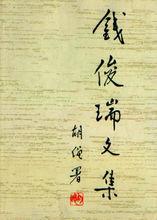 錢俊瑞文集
胡繩署